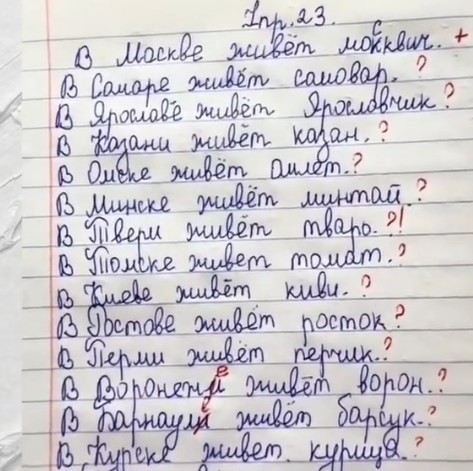 Упр. 23.
В Москве живёт москвич. +
В Самаре живёт самовар. ?
В Ярославе живёт Ярославчик ?
В Казани живёт казан. ?
В Омске живёт омлет. ?
В Минске живёт минтай. ?
В Твери живёт тварь. ?!
В Томске живет томат. ?
В Киеве живёт киви. ?
В Ростове живёт росток ?
В Перми живёт перчик. ?
В Воронежие живёт ворон. ?
В Барнауле живёт барсук. ?
В Курске живет курица. ?